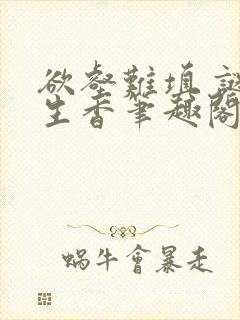 欲壑難填 謎
生香筆趣閣
蝸牛會暴走